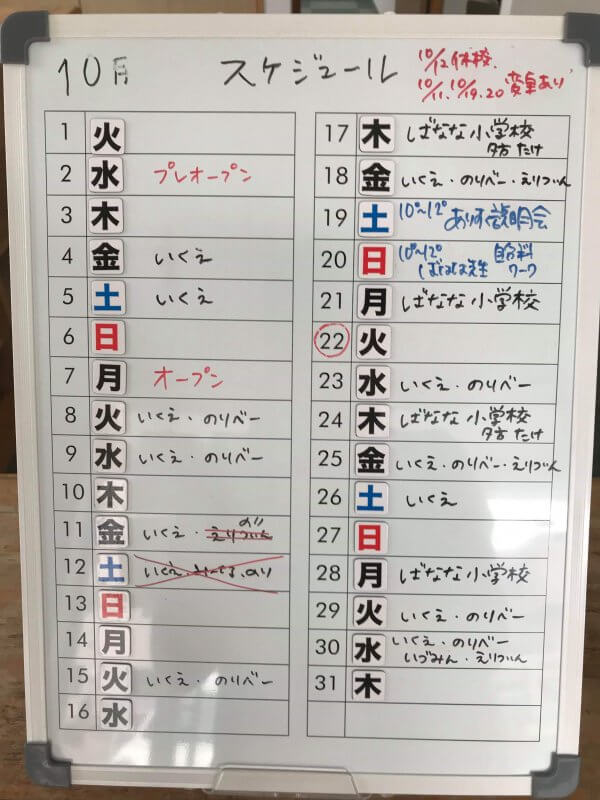 10月 スケジュール
10/12 休校.
10/11.10/19.20 変更あり
1 火
2 水 プレオープン
3 木
4 金 いくえ
5 土 いくえ
6 日
7 月 オープン
8 火 いくえ・のりべー
9 水 いくえ・のりべー
10 木
11 金 いくえ・えりつぃん のり
12 土 いくえ のり
13 日
14 月
15 火 いくえ・のりべー
16 水
17 木 ばなな小学校
夕方 たけ
18 金 いくえ・のりべー・えりつぃん
19 土 10°〜12° ありす説明会
20 日 10°〜12° 給料
ばなな先生 ワーク
21 月 ばなな小学校
22 火
23 水 いくえ・のりべー
24 木 ばなな小学校
夕方 たけ
25 金 いくえ・のりべー・えりつぃん
26 土 いくえ
27 日
28 月 ばなな小学校
29 火 いくえ・のりべー
30 水 いくえ・のりべー
いづみん・えりつぃん
31 木